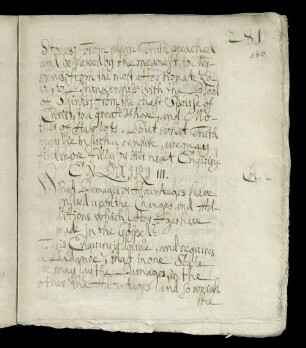 281
160
Stones; from plain Truth preached
and professed by the meanest to
from the most affectionate
with the Blood
of Saints; from the chast Spouse of
Christ, to a great Whore, and Mo-
ther of Harlots. But what Truth
may be in such a censure, we may
more fully by our next Enquiry.
ENQUIRY III.
What Damages or Advantages have
ensued upon the Changes and
which After Ages have
made in the Gospell?
This Enquiry is double, and requires
a Ballance, that in one Scale
we may lay the Damages, in the
other the Advantages, and so weigh
the